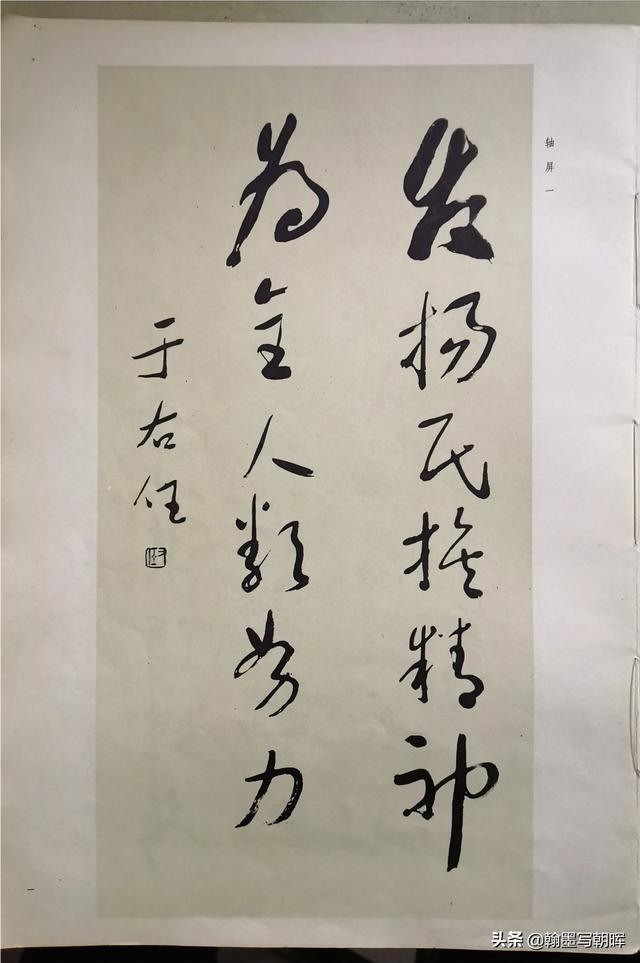 轴屏一
发扬民族精神
为全人类努力
于右任
右任
一
头条 @翰墨写朝晖